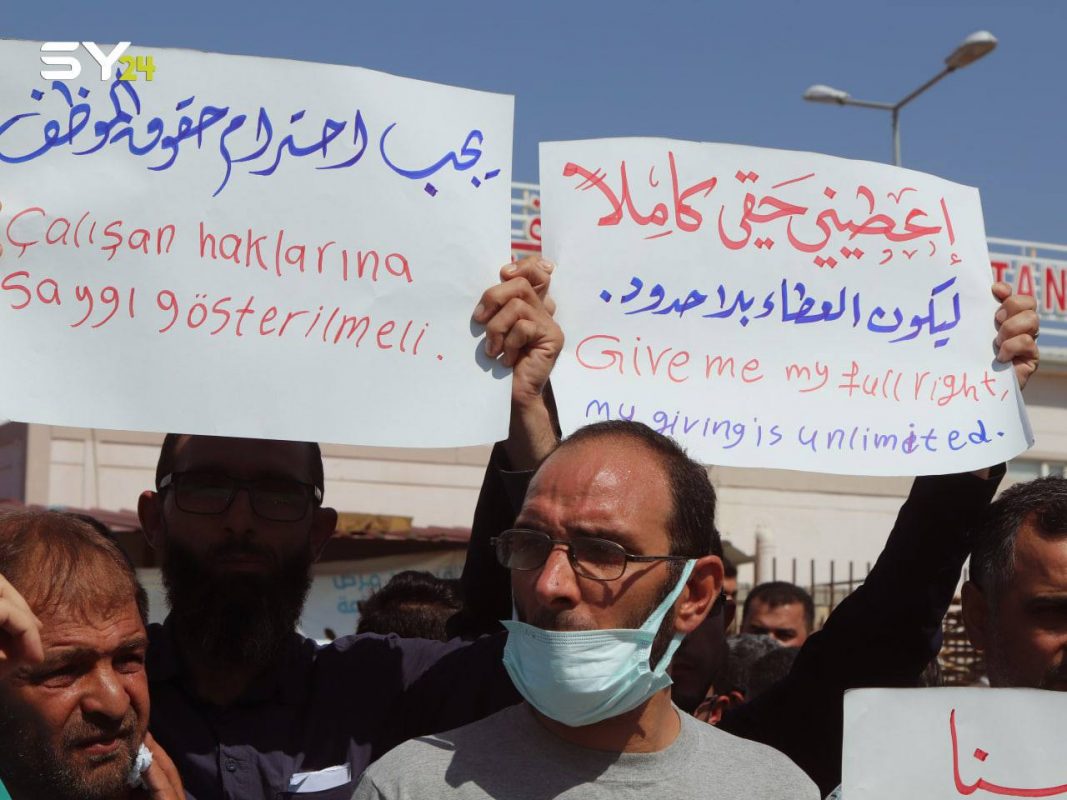 SY24
يجب احترام حقوق الموظف
Çalışan haklarına
saygı gösterilmeli.
إعطيني حقي كاملاً
ليكون العطاء بلا حدود.
Give me my full right,
my giving is unlimited.
TAN
نا